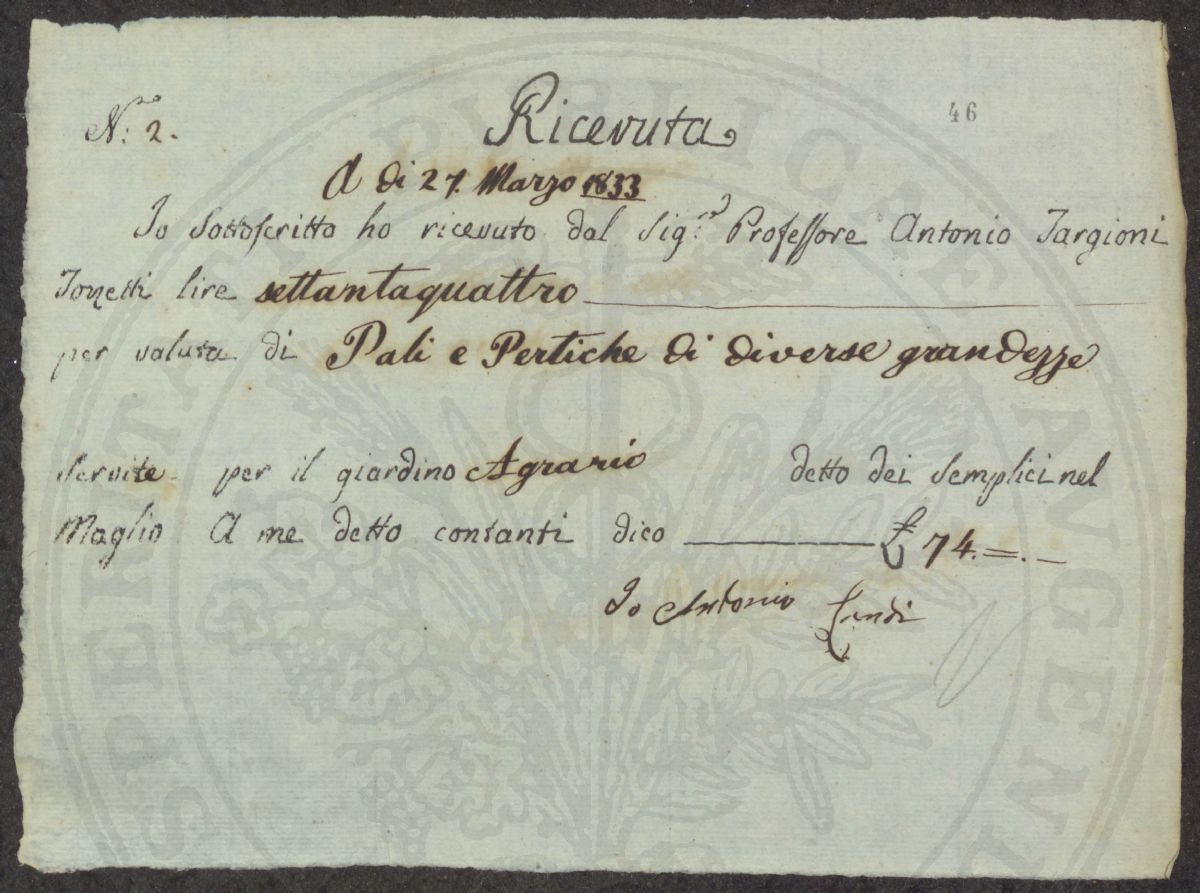 46
N.º 2.
Ricevuta
A di 27. Marzo 1833
Io Sottoscritto ho ricevuto dal Sig.re Professore Antonio Targioni
Tozzetti lire settantaquattro
per valuta di Pali e Pertiche di diverse grandezze
servite per il giardino Agrario detto dei Semplici nel
Maglio A me detto contanti dico £ 74.=.-
Io Antonio
PROSPERITATI PUBLICAE AUGENDAE